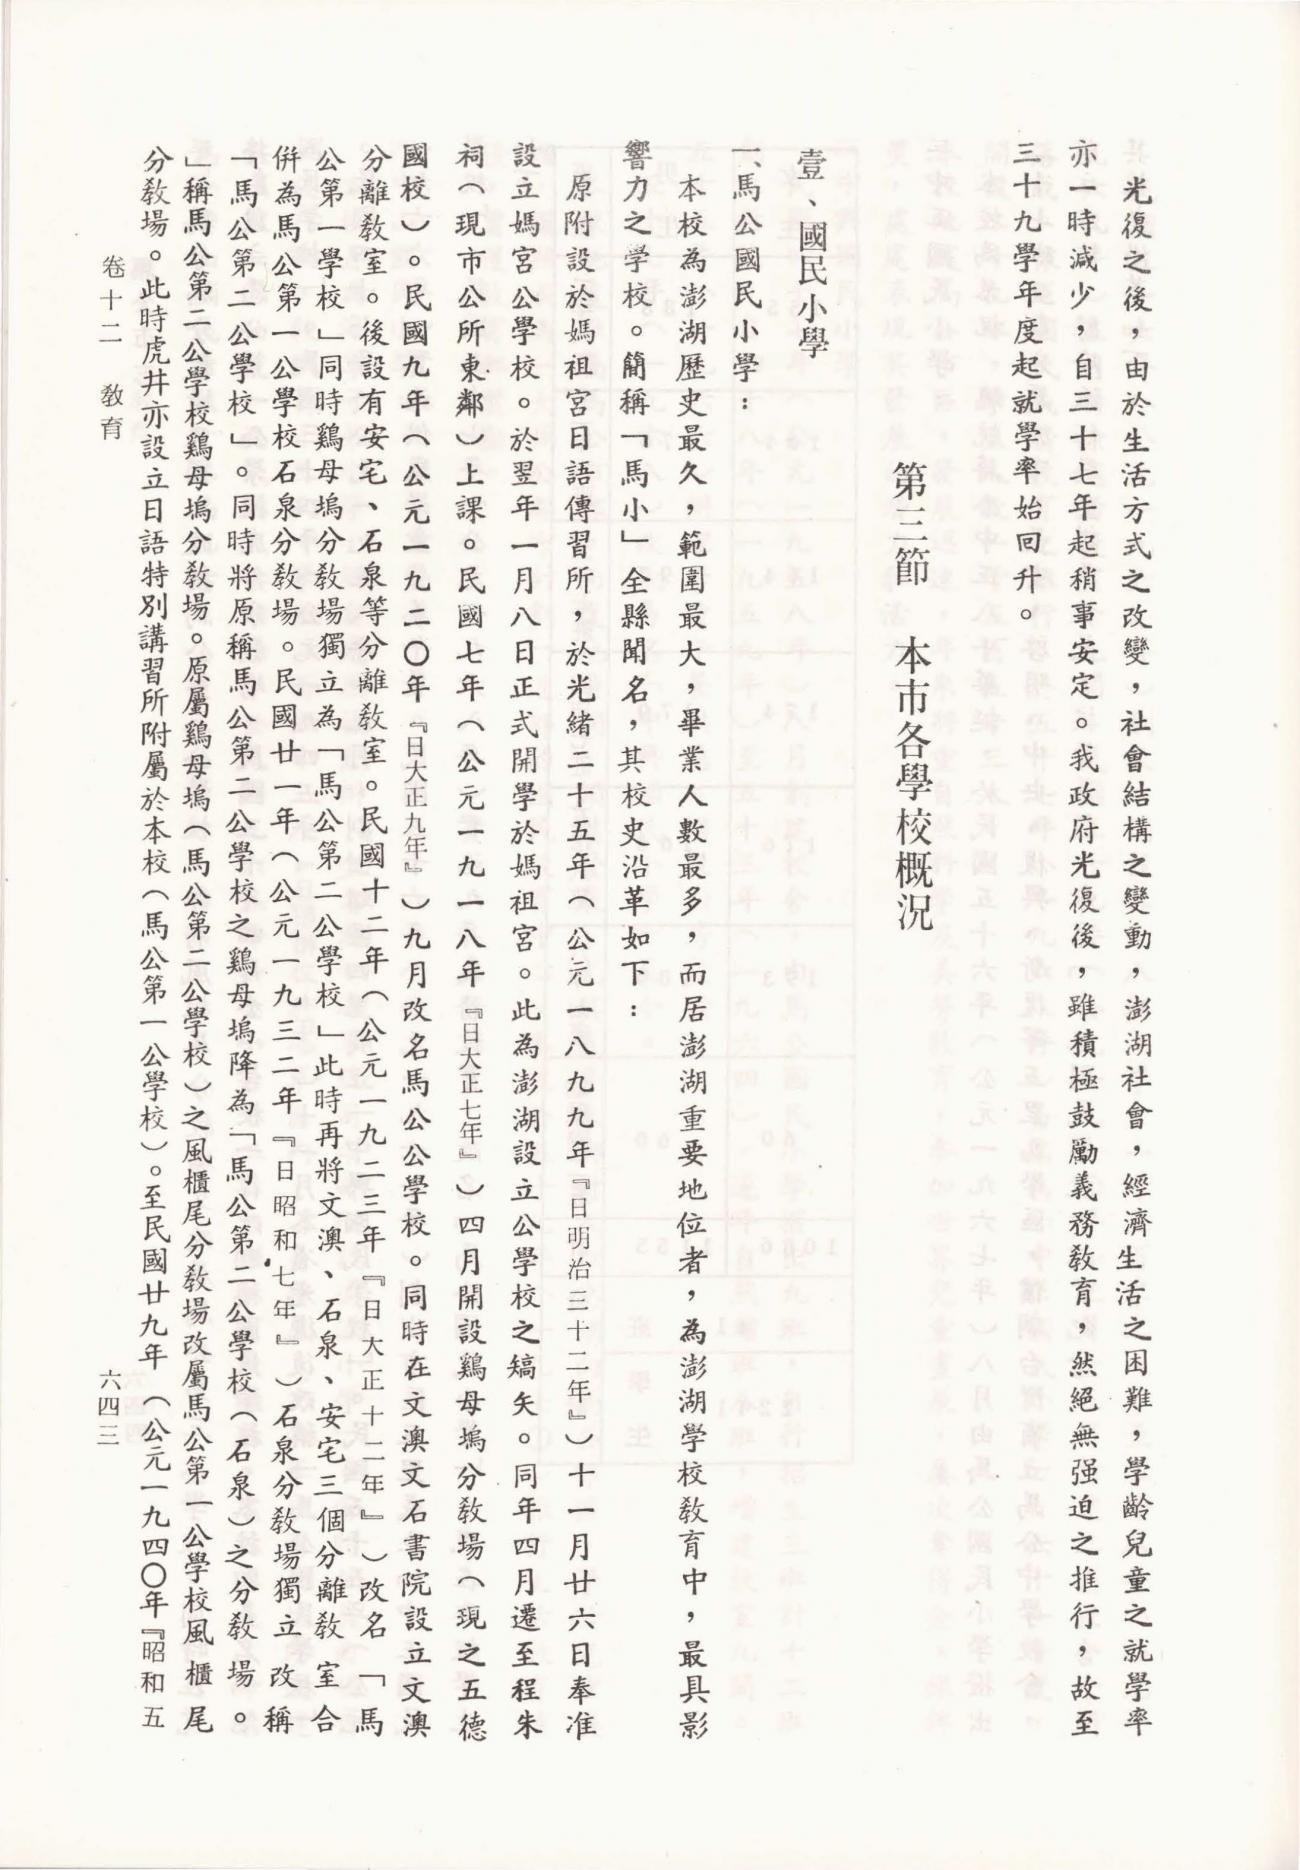 光復之後，由於生活方式之改變，社會結構之變動，澎湖社會，經濟生活之困難，學齡兒童之就學率
亦一時減少，自三十七年起稍事安定。我政府光復後，雖積極鼓勵義務教育，然絕無强迫之推行，故至
三十九學年度起就學率始回升。
第三節　本市各學校概況
壹、國民小學
一、馬公國民小學：
本校為澎湖歷史最久，範圍最大，畢業人數最多，而居澎湖重要地位者，為澎湖學校教育中，最具影
響力之學校。簡稱「馬小」全縣聞名，其校史沿革如下：
原附設於媽祖宮日語傳習所，於光緒二十五年（公元一八九九年『日明治三十二年』）十一月廿六日奉准
設立媽宮公學校。於翌年一月八日正式開學於媽祖宮。此為澎湖設立公學校之矯矢。同年四月遷至程朱
祠（現市公所東鄰）上課。民國七年（公元一九一八年『日大正七年』）四月開設鷄母塢分教場（現之五德
國校）。民國九年（公元一九二〇年『日大正九年』）九月改名馬公公學校。同時在文澳文石書院設立文澳
分離教室。後設有安宅、石泉等分離教室。民國十二年（公元一九二三年『日大正十二年』）改名「馬
公第一學校」同時鷄母塢分教場獨立為「馬公第二公學校」此時再將文澳、石泉、安宅三個分離教室合
併為馬公第一公學校石泉分教場。民國廿一年（公元一九三二年『日昭和七年』）石泉分教場獨立改稱
「馬公第二公學校」。同時將原稱馬公第二公學校之鷄母塢降為「馬公第二公學校（石泉）之分教場。
」稱馬公第二公學校鷄母塢分教場。原屬鷄母塢（馬公第二公學校）之風櫃尾分教場改屬馬公第一公學校風櫃尾
分教場。此時虎井亦設立日語特別講習所附屬於本校（馬公第一公學校）。至民國廿九年（公元一九四〇年『昭和五
卷十二　教育
六四三